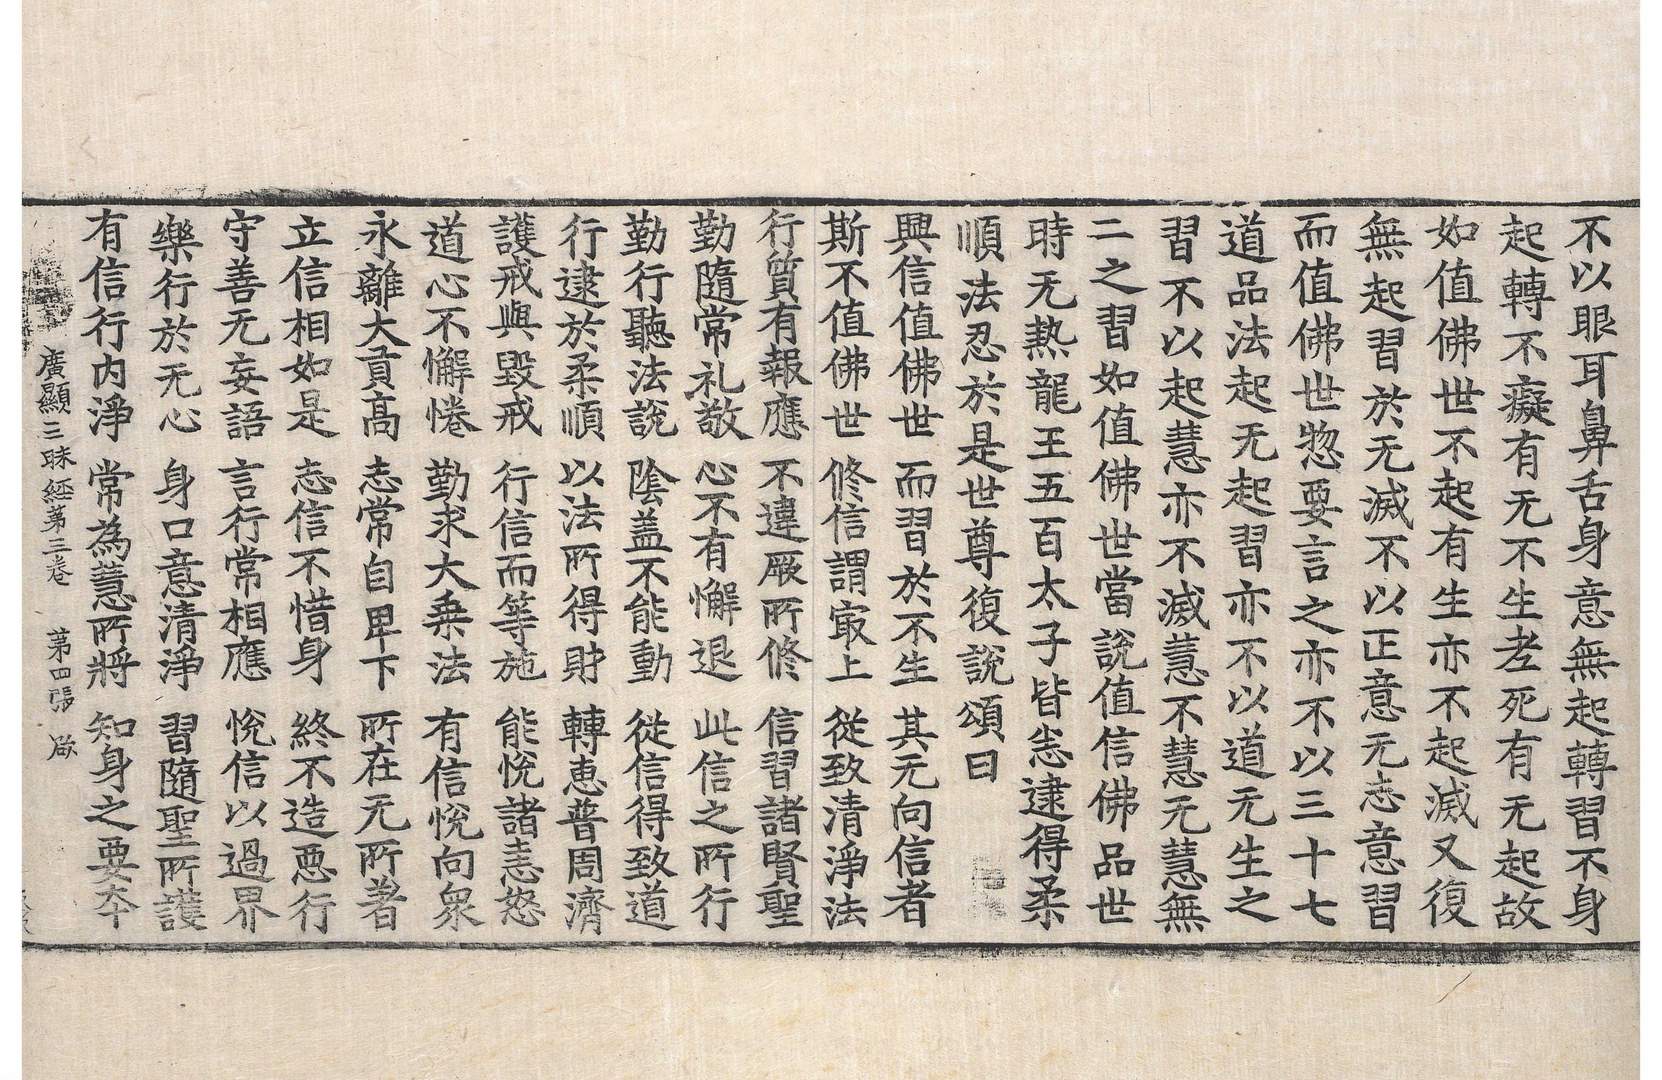 不以眼耳鼻舌身意無起轉習不身
起轉不癡有无不生老死有无起故
如值佛世不起有生亦不起滅又復
無起習於无滅不以正意无志意習
而值佛世惣要言之亦不以三十七
道品法起无起習亦不以道无生之
習不以起慧亦不滅慧不慧无慧無
二之習如值佛世當說值信佛品世
時无熱龍王五百太子皆悉逮得柔
順法忍於是世尊復說頌曰
興信值佛世 而習於不生 其无向信者
斯不值佛世 修信謂寂上 從致清淨法
行質有報應 不違厥所修 信習諸賢聖
勤隨常礼敬 心不有懈退 此信之所行
勤行聽法說 陰盖不能動 從信得致道
行逮於柔順 以法所得財 轉恵普周濟
護戒與毀戒 行信而等施 能悅諸恚怒
道心不懈惓 勤求大乘法 有信悅向衆
永離大貢高 志常自卑下 所在无所著
立信相如是 志信不惜身 終不造惡行
守善无妄語 言行常相應 悅信以過界
樂行於无心 身口意清淨 習隨聖所護
有信行内淨 常為慧所將 知身之要夲
廣顯三昧經第三卷 第四張